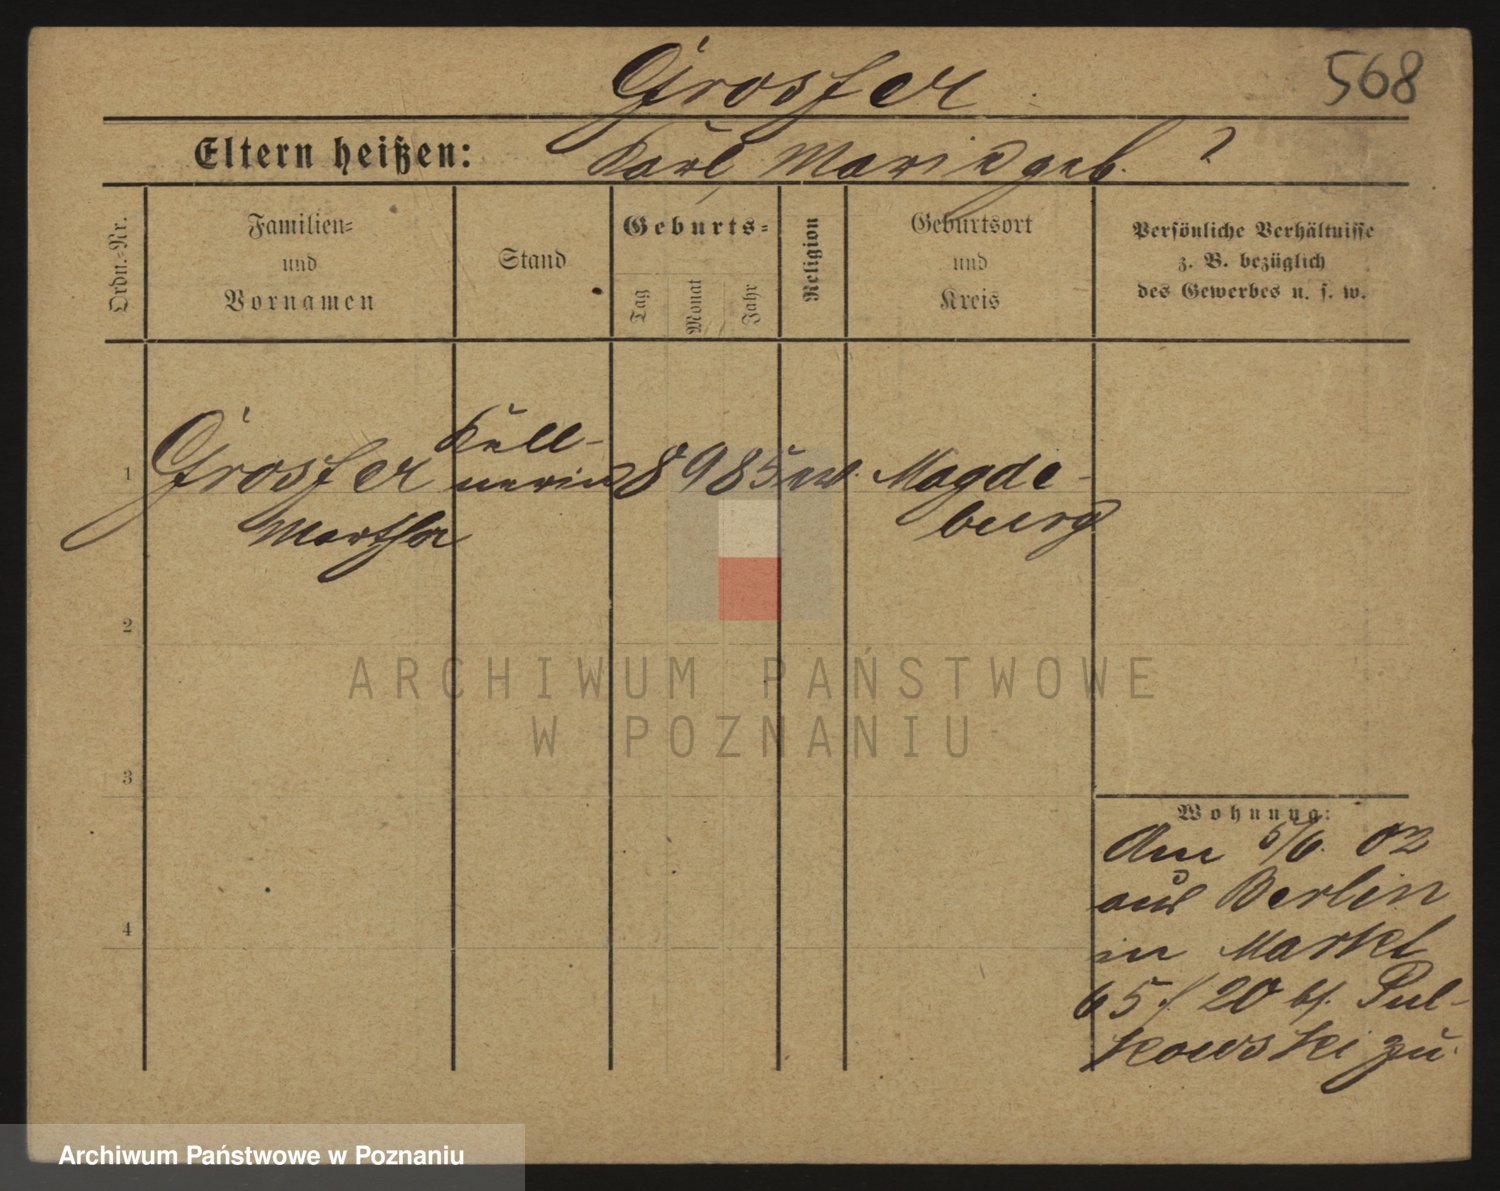 Grosser
568
Eltern heißen: Karl, Marie geb. ?
Ordn.-Nr.
Familien-
und
Vornamen
Stand
Geburts-
Tag
Monat
Jahr
Religion
Geburtsort
und
Kreis
Persönliche Verhältnisse
z. B. bezüglich
des Gewerbes u. s. w.
1
Grosser
Martha
Kell-
nerin
8 9 85
Magde-
burg
2
3
4
Wohnung:
Am 5/6. 02
aus Berlin
in Markt
65 / 20 bf. Pul-
kowski zu.
ARCHIWUM PAŃSTWOWE
W POZNANIU
Archiwum Państwowe w Poznaniu